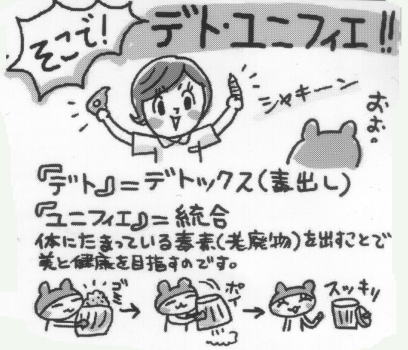 そこで!
デト・ユニフィエ!!
シャキーン
おぉ。
『デト』=デトックス(毒出し)
『ユニフィエ』=統合
体にたまっている毒素(老廃物)を出すことで
美と健康を目指すのです。
ゴミ
ポイ
スッキリ